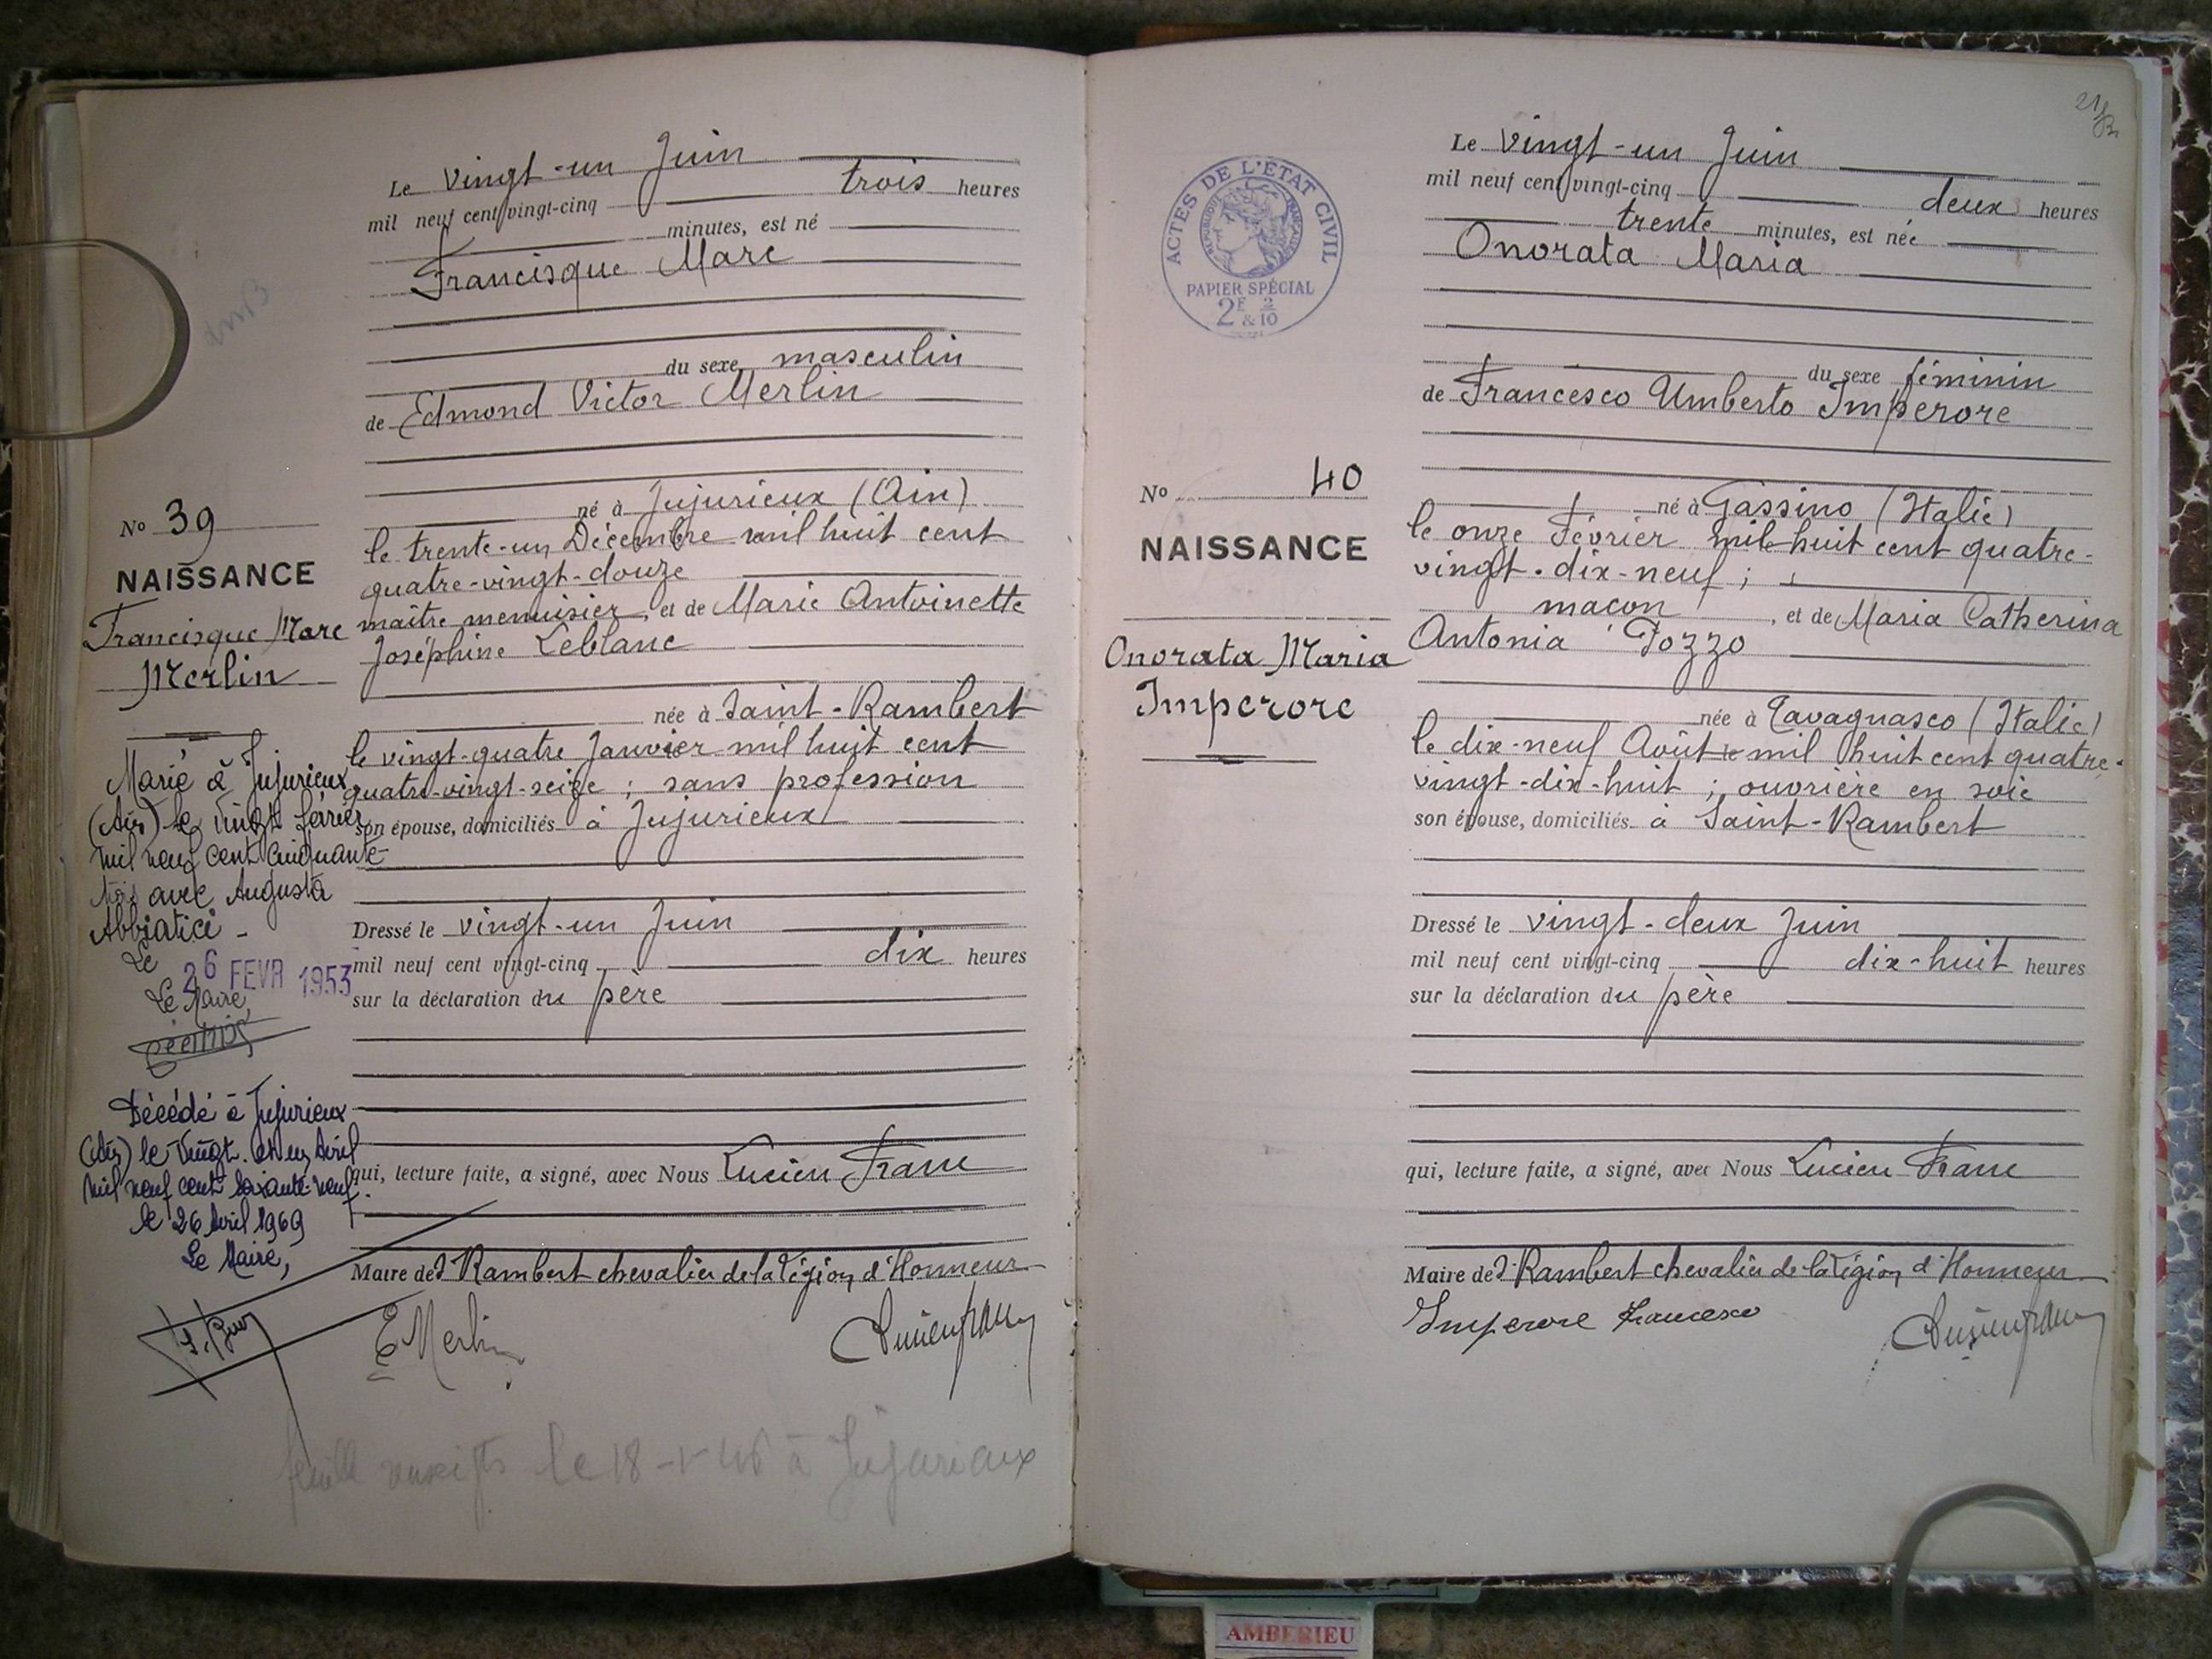 Le vingt-un Juin
mil neuf cent vingt-cinq trois heures
minutes, est né
Francisque Marc
du sexe masculin
de Edmond Victor Merlin
né à Jujurieux (Ain)
le trente-un Décembre mil huit cent
quatre-vingt-douze
maître menuisier, et de Marie Antoinette
Joséphine Leblanc
née à Saint-Rambert
le vingt-quatre Janvier mil huit cent
quatre-vingt-seize ; sans profession
son épouse, domiciliés à Jujurieux
Dressé le vingt-un Juin
mil neuf cent vingt-cinq dix heures
sur la déclaration du père
qui, lecture faite, a signé, avec Nous Lucien Franc
Maire de St Rambert chevalier de la Légion d'Honneur
E Merlin
No 39
NAISSANCE
Francisque Marc
Merlin
Marié à Jujurieux
(Ain) le vingt février
mil neuf cent cinquante-
trois avec Augusta
Abbiatici -
Le 26 FEVR 1953
Le Maire,
Décédé à Jujurieux
(Ain) le vingt et un Avril
mil neuf cent soixante-neuf.
le 26 Avril 1969
Le Maire,
le 18 - à Jujurieux
21
ACTES DE L'ÉTAT CIVIL
RÉPUBLIQUE FRANÇAISE
PAPIER SPÉCIAL
2E 2
& 10
Le vingt-un Juin
mil neuf cent vingt-cinq deux heures
trente minutes, est née
Onorata Maria
du sexe féminin
de Francesco Umberto Imperore
né à Gassino (Italie)
le onze Février mil huit cent quatre-
vingt-dix-neuf ;
macon, et de Maria Catherina
Antonia Pozzo
née à Tavagnasco (Italie)
le dix-neuf Août mil huit cent quatre-
vingt-dix-huit ; ouvrière en soie
son épouse, domiciliés à Saint-Rambert
Dressé le vingt-deux Juin
mil neuf cent vingt-cinq dix-huit heures
sur la déclaration du père
qui, lecture faite, a signé, avec Nous Lucien Franc
Maire de St Rambert chevalier de la Légion d'Honneur
Imperore Francesco
No 40
NAISSANCE
Onorata Maria
Imperore
AMBERIEU